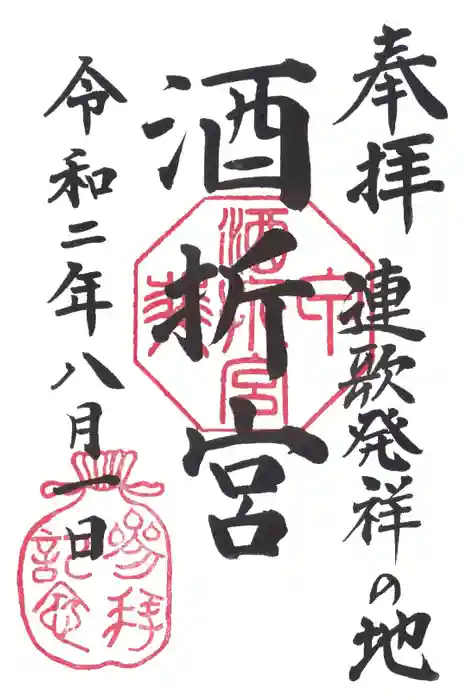 奉拝 連歌発祥の地
酒折宮
令和二年八月一日
参拝
記念